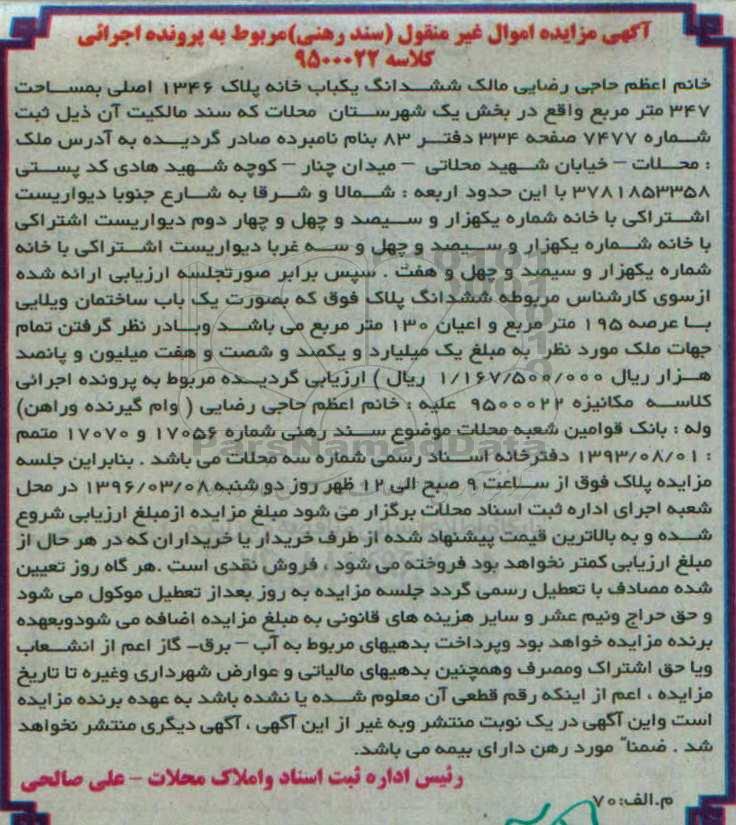 آگهی مزایده اموال غیر منقول (سند رهنی) مربوط به پرونده اجرائی
کلاسه ۹۵۰۰۰۲۲
خانم اعظم حاجی رضایی مالک ششدانگ یکباب خانه پلاک ۱۳۴۶ اصلی بمساحت
۳۴۷ متر مربع واقع در بخش یک شهرستان محلات که سند مالکیت آن ذیل ثبت
شماره ۷۴۷۷ صفحه ۳۳۴ دفتر ۸۳ بنام نامبرده صادر گردیده به آدرس ملک
: محلات – خیابان شهید محلاتی – میدان چنار – کوچه شهید هادی کد پستی
۳۷۸۱۸۵۳۳۵۸ با این حدود اربعه : شمالا و شرقا به شارع جنوبا دیواریست
اشتراکی با خانه شماره یکهزار و سیصد و چهل و چهار دوم دیواریست اشتراکی
با خانه شماره یکهزار و سیصد و چهل و سه غربا دیواریست اشتراکی با خانه
شماره یکهزار و سیصد و چهل و هفت . سپس برابر صورتجلسه ارزیابی ارائه شده
ازسوی کارشناس مربوطه ششدانگ پلاک فوق که بصورت یک باب ساختمان ویلایی
با عرصه ۱۹۵ متر مربع و اعیان ۱۳۰ متر مربع می باشد وبادر نظر گرفتن تمام
جهات ملک مورد نظر به مبلغ یک میلیارد و یکصد و شصت و هفت میلیون و پانصد
هزار ریال ۱/۱۶۷/۵۰۰/۰۰۰ ریال ) ارزیابی گردیده مربوط به پرونده اجرائی
کلاسه مکانیزه ۹۵۰۰۰۲۲ علیه : خانم اعظم حاجی رضایی ( وام گیرنده وراهن)
وله : بانک قوامین شعبه محلات موضوع سند رهنی شماره ۱۷۰۵۶ و ۱۷۰۷۰ متمم
: ۱۳۹۳/۰۸/۰۱ دفترخانه اسناد رسمی شماره سه محلات می باشد . بنابراین جلسه
مزایده پلاک فوق از ساعت ۹ صبح الی ۱۲ ظهر روز دو شنبه ۱۳۹۶/۰۳/۰۸ در محل
شعبه اجرای اداره ثبت اسناد محلات برگزار می شود مبلغ مزایده ازمبلغ ارزیابی شروع
شده و به بالاترین قیمت پیشنهاد شده از طرف خریدار یا خریداران که در هر حال از
مبلغ ارزیابی کمتر نخواهد بود فروخته می شود ، فروش نقدی است .هر گاه روز تعیین
شده مصادف با تعطیل رسمی گردد جلسه مزایده به روز بعداز تعطیل موکول می شود
و حق حراج ونیم عشر و سایر هزینه های قانونی به مبلغ مزایده اضافه می شودوبعهده
برنده مزایده خواهد بود وپرداخت بدهیهای مربوط به آب – برق- گاز اعم از انشعاب
ویا حق اشتراک ومصرف وهمچنین بدهیهای مالیاتی و عوارض شهرداری وغیره تا تاریخ
مزایده ، اعم از اینکه رقم قطعی آن معلوم شده یا نشده باشد به عهده برنده مزایده
است واین آگهی در یک نوبت منتشر وبه غیر از این آگهی ، آگهی دیگری منتشر نخواهد
شد . ضمناً مورد رهن دارای بیمه می باشد.
رئیس اداره ثبت اسناد واملاک محلات - علی صالحی
م.الف:۷۰
ParsNamadData